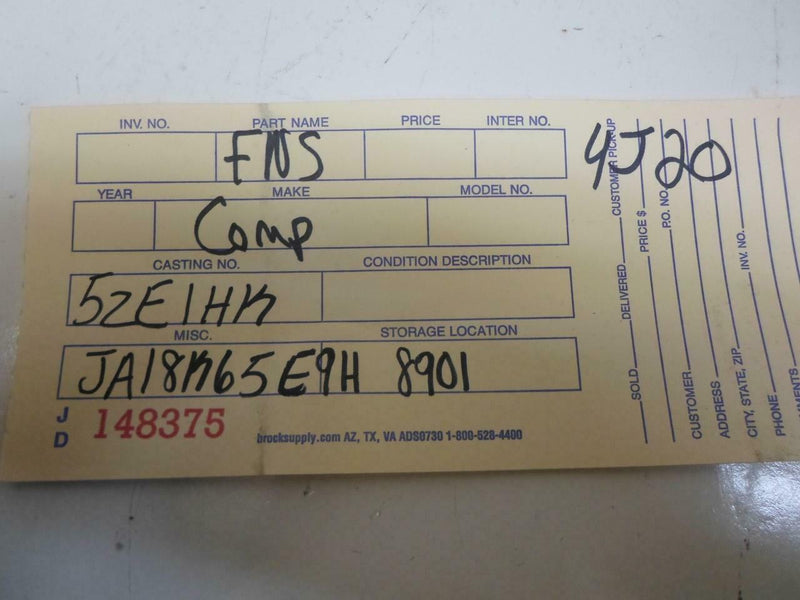 INV. NO. PART NAME PRICE INTER NO.
FNS
4J20
YEAR MAKE MODEL NO.
Comp
CASTING NO. CONDITION DESCRIPTION
52E1HK
MISC. STORAGE LOCATION
JA18K65E9H 8901
JD 148375
brocksupply.com AZ, TX, VA ADS0730 1-800-528-4400
SOLD DELIVERED CUSTOMER PICK-UP
PRICE $
P.O. NO.
CUSTOMER
ADDRESS
CITY, STATE, ZIP INV. NO.
PHONE